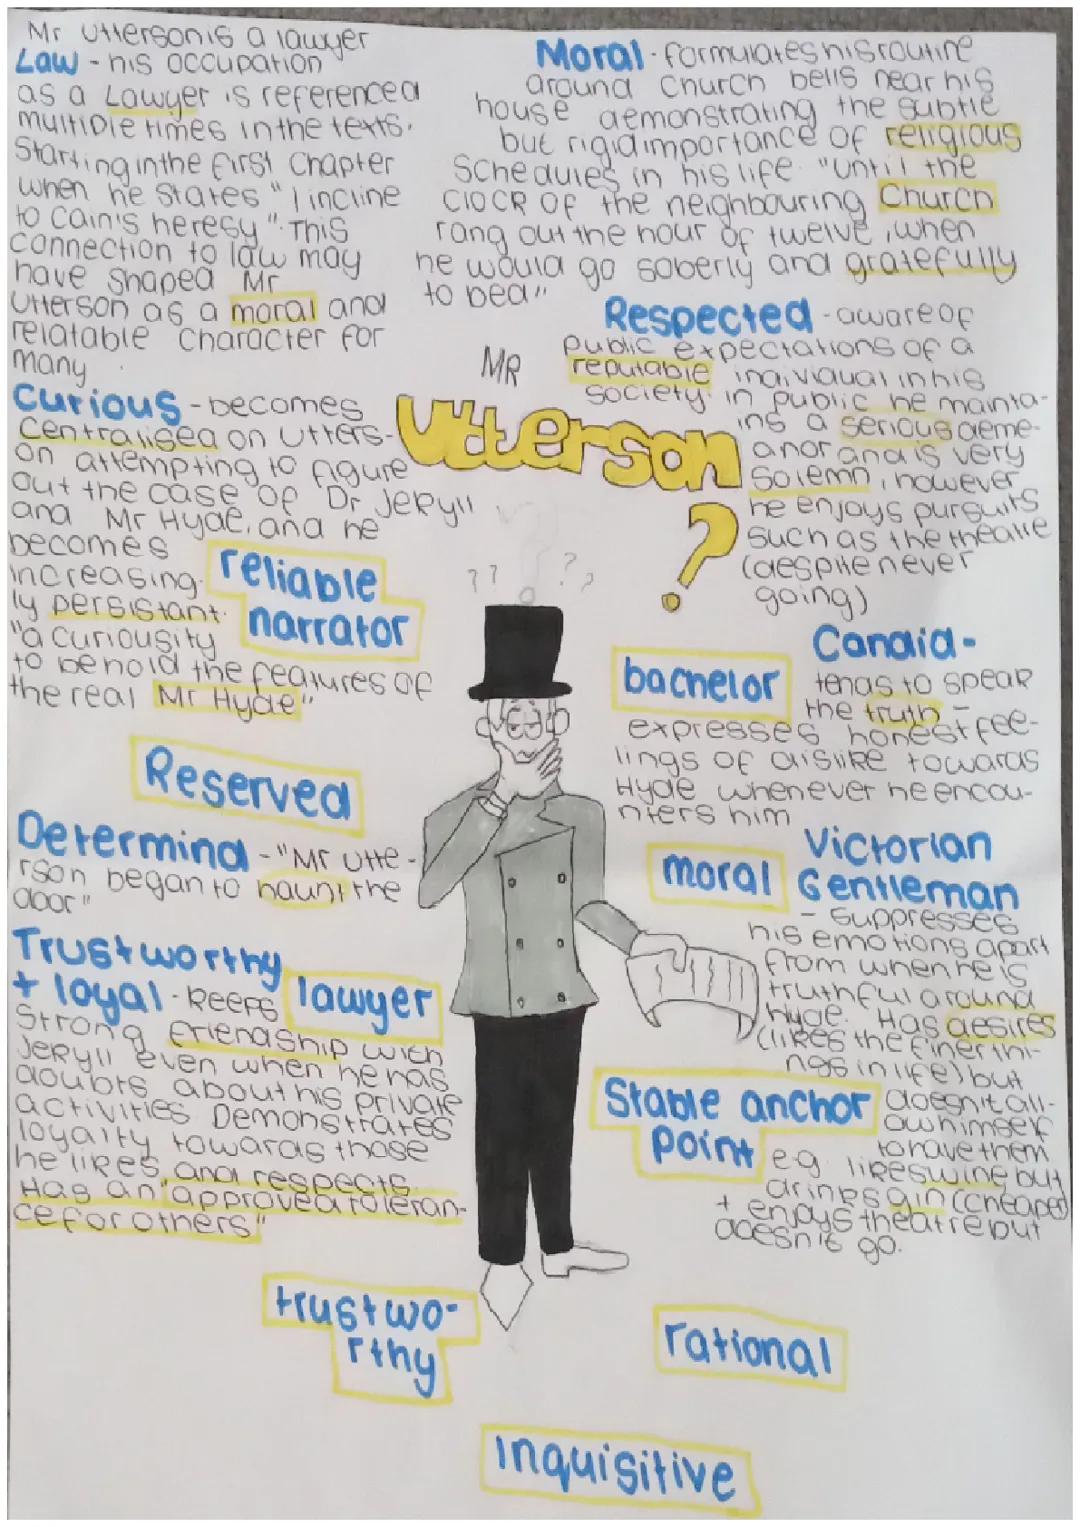 Mr Utterson is a lawyer
Law - his occupation
as a Lawyer is referenced
multiple times in the texts.
Starting in the first Chapter
when he states "I incline
to Cain's heresy". This
connection to law may
have shaped Mr
Utterson as a moral and
relatable character for
many.
Curious - becomes
centralised on Utters-
on attempting to figure
out the case of Dr Jekyll
and Mr Hyde, and he
becomes
increasing-
ly persistant.
"a curiousity
to behold the features of
the real Mr Hyde"
reliable
narrator
Reserved
Determind - "Mr Utte-
rson began to haunt the
door"
Trustworthy
+ loyal - keeps
strong friendship with
Jekyll even when he has
doubts about his private
activities Demonstrates
loyalty towards those
he likes and respects.
Has an "approved toleran-
ce for others"
lawyer
trustwo-
rthy
Moral - formulates his routine
around Church bells near his
house demonstrating the subtle
but rigid importance of religious
schedules in his life. "until the
clock of the neighbouring Church
rang out the hour of twelve, when
he would go soberly and gratefully
to bed"
Respected - aware of
public expectations of a
reputable individual in his
society. in public he mainta-
ins a serious deme-
anor and is very
solemn, however
he enjoys pursuits
such as the theatre
(despite never
going)
MR
Utterson
?
? ? ? ? ?
bachelor
Candid -
tends to speak
the truth -
expresses honest fee-
lings of dislike towards
Hyde whenever he encou-
nters him
moral
Victorian
Gentleman
- suppresses
his emotions apart
from when he is
truthful around
Hyde. Has desires
(likes the finer thi-
ngs in life) but
doesn't all-
ow himself
to have them
e.g. likes wine but
drinks gin (cheaper)
+ enjoys theatre but
doesn't go.
Stable anchor
point
rational
inquisitive